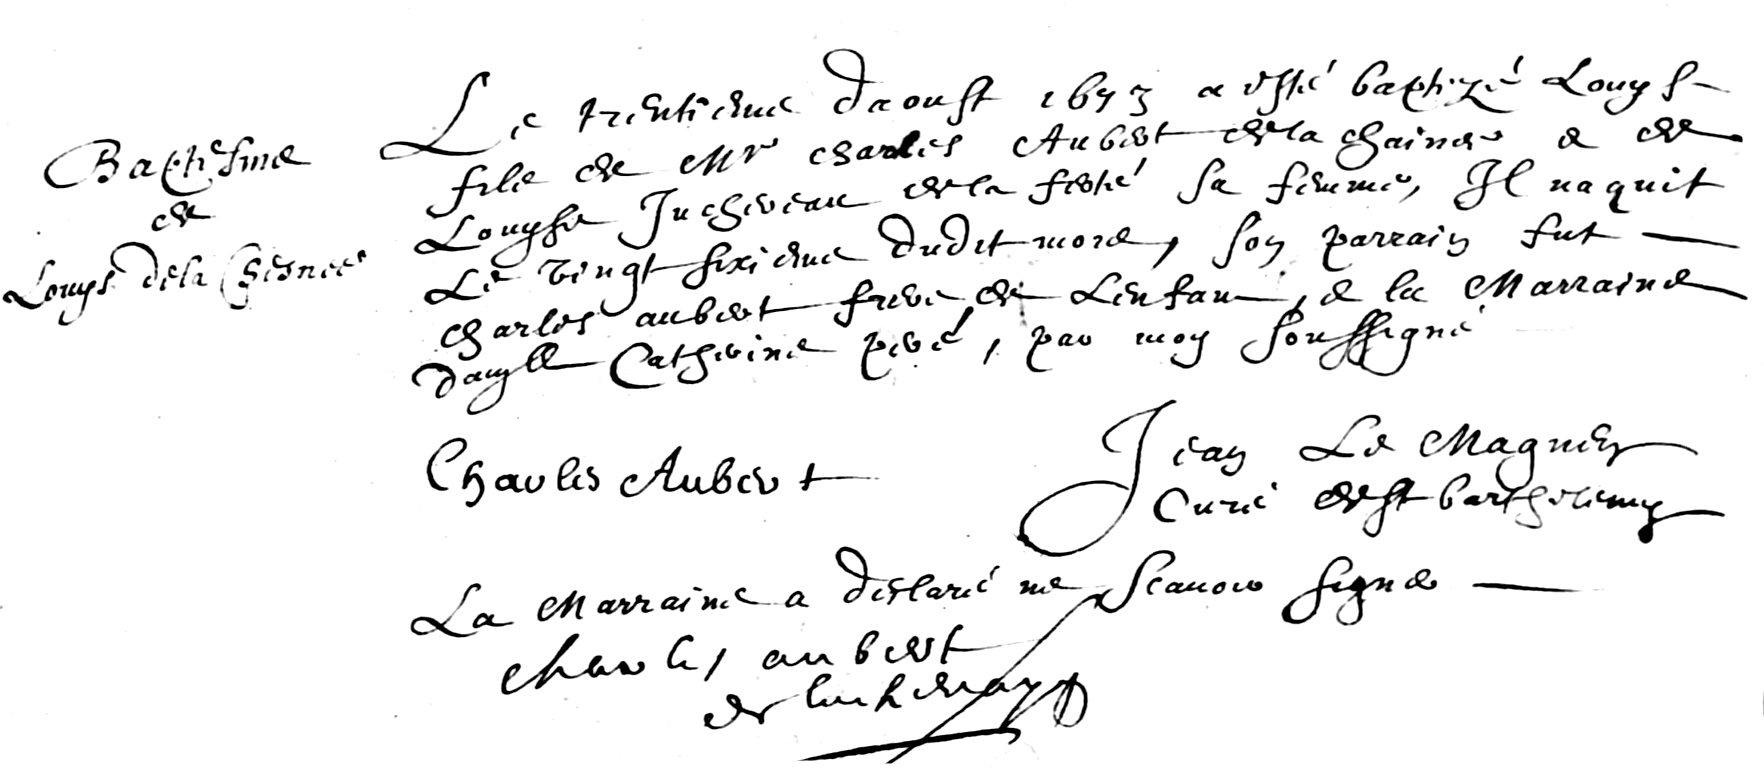 Baptesme
de
Louys de la Chesnee
Le trentieme daoust 1673 a esté baptizé Louys
filz de Mr charles Aubert de la chainee & de
Louyse Jucherau de la ferté sa femme, Il naquit
Le vingt sixieme dudit mois, son parrain fut
charles aubert frere de Lenfant, & la Marraine
damlle Catherine pevé, par moy soussigné
Charles Aubert
Jean Le Magner
Curé de st barthelemy
La Marraine a declaré ne scauoir signer
charles aubert
de lachenaye